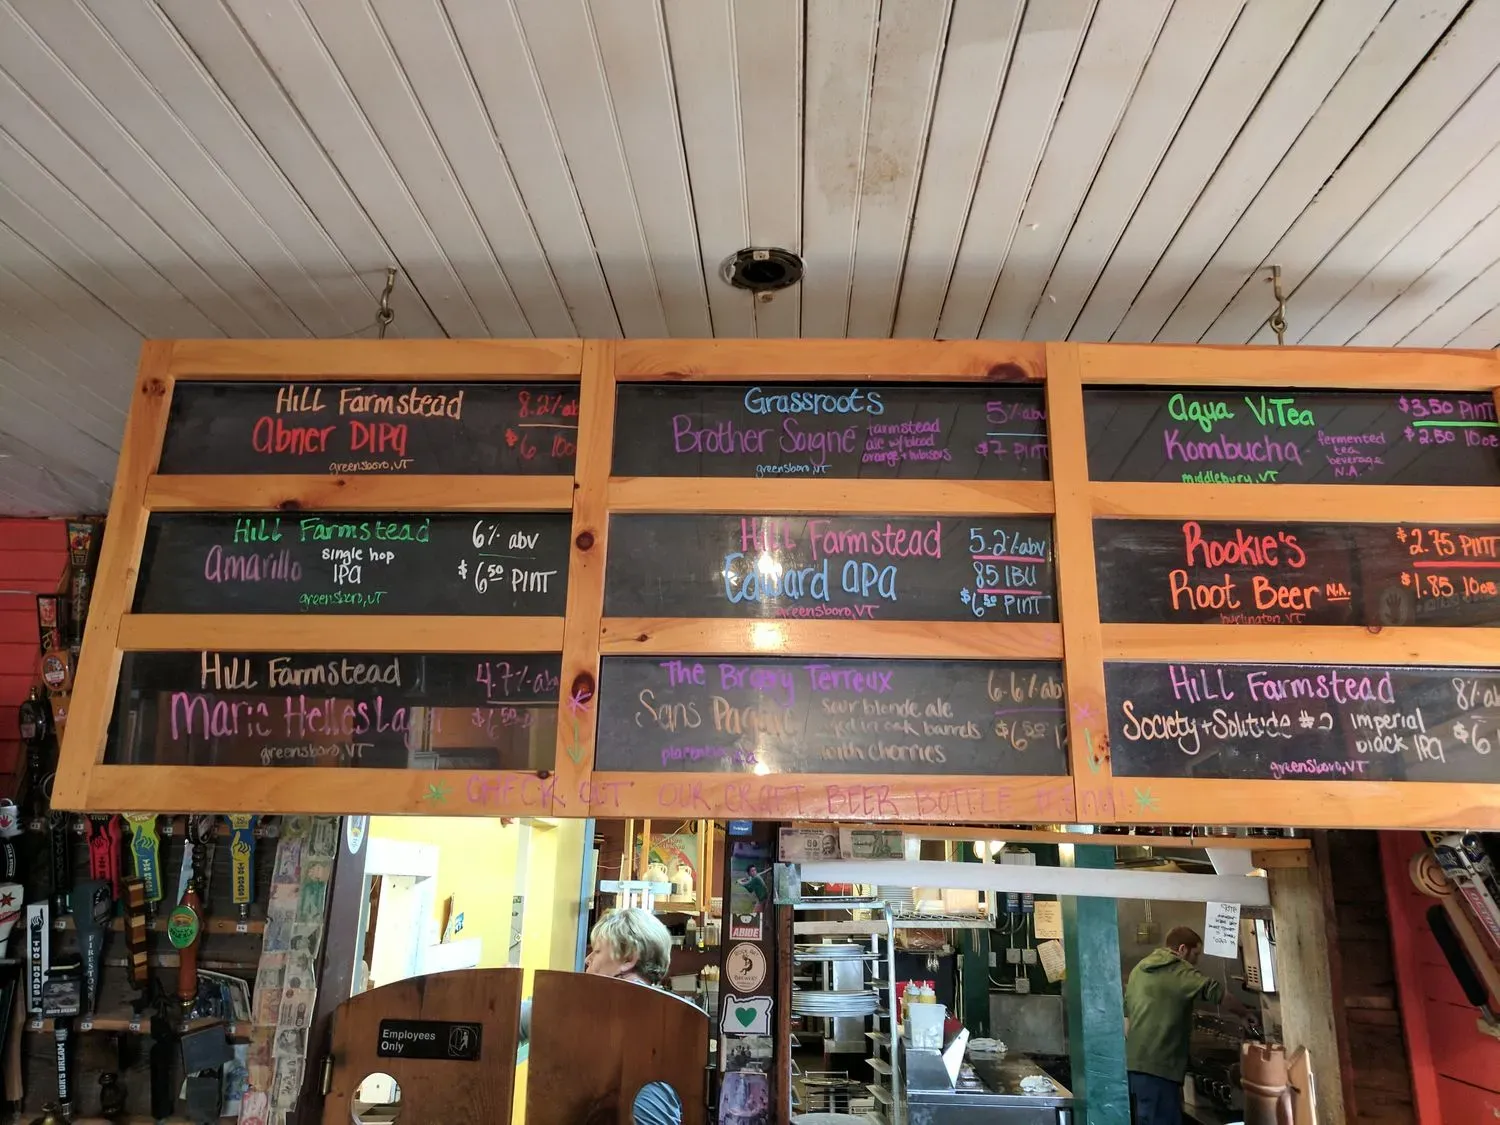 Hill Farmstead 8.2% ab
Abner DIPA $6 10o
greensboro, VT
Grassroots 5% abv
Brother Soigné farmstead ale w/ blood orange + hibiscus $7 PINT
greensboro, VT
Aqua ViTea $3.50 PINT
Kombucha fermented tea beverage N.A. $2.50 10oz
middlebury, VT
Hill Farmstead 6% abv
Amarillo single hop IPA $6.50 PINT
greensboro, VT
Hill Farmstead 5.2% abv
Edward APA 85 IBU
$6.50 PINT
greensboro, VT
Rookie's $2.75 PINT
Root Beer N.A. $1.85 10oz
burlington, VT
Hill Farmstead 4.7% ab
Marie Helles Lager $6.50
greensboro, VT
The Bruery Terreux 6.6% ab
Sans sour blonde ale
in oak barrels $6.50
with cherries
Hill Farmstead 8% a
Society + Solitude #2 imperial black IPA $6
greensboro, VT
* CHECK OUT OUR CRAFT BEER BOTTLE MENU! *
Employees
Only
TWO ROADS
IGOR'S DREAM
ABIDE